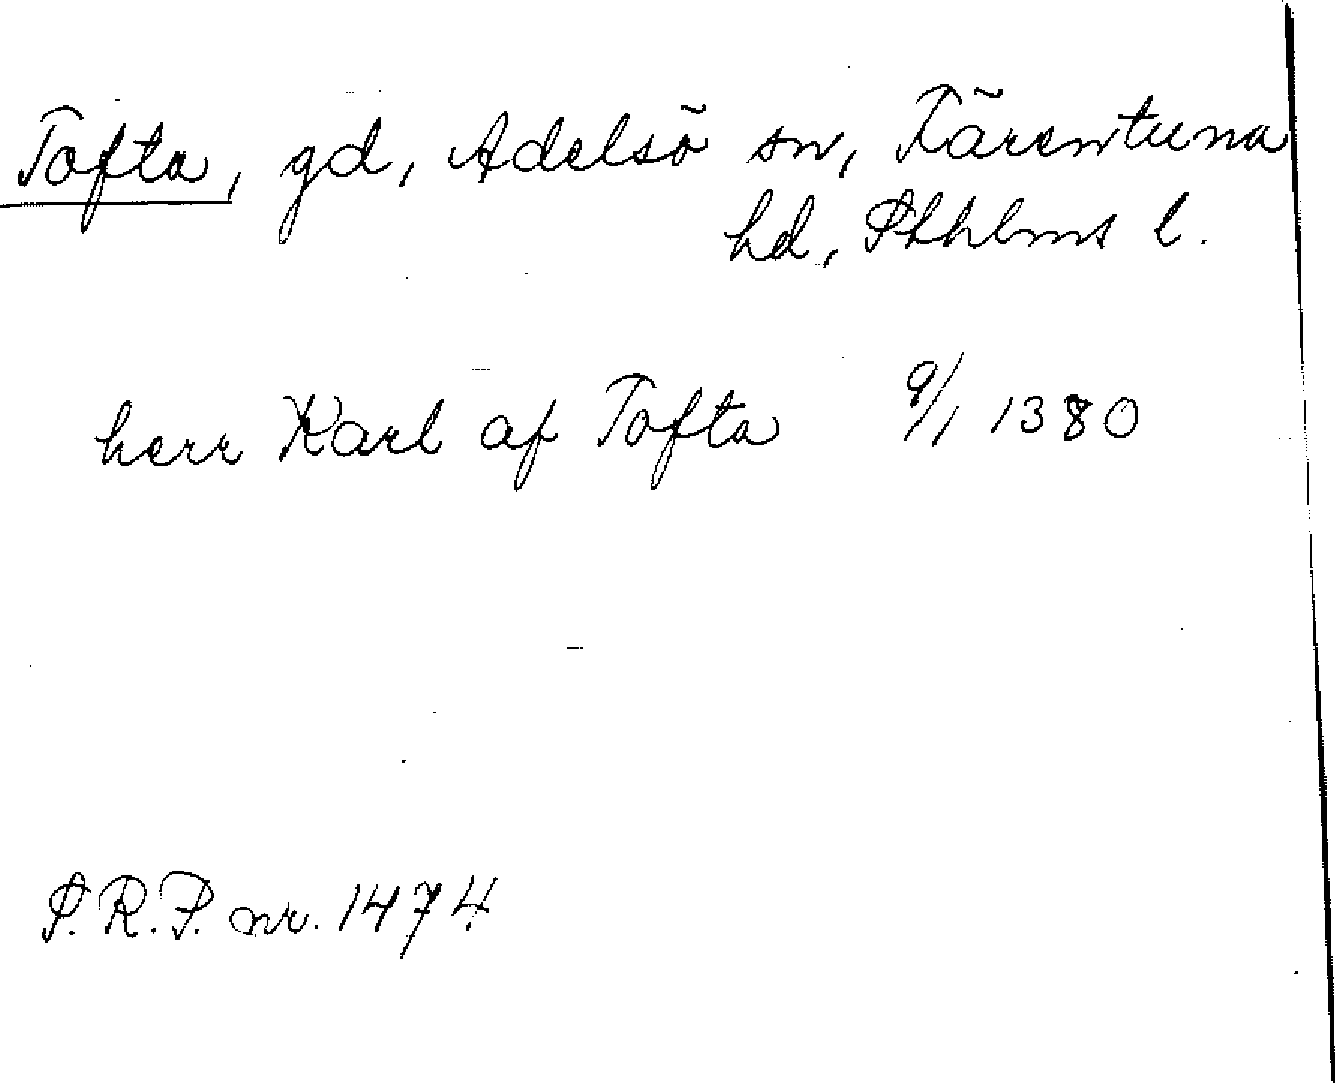 Tofta, gd, Adelsö sn, Färentuna
hd, Sthlms l.
herr Karl af Tofta 9/1 1380
S.R.P. nr. 1474